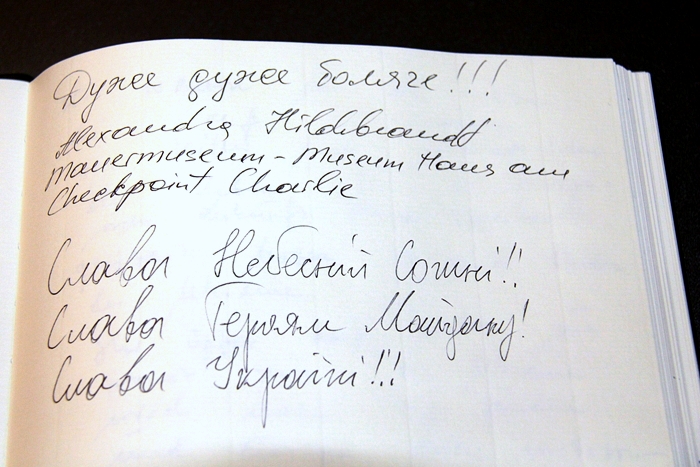 Дуже дуже боляче!!!
Alexandra Hildebrandt
Mauermuseum - Museum Haus am
Checkpoint Charlie
Слава Небесній Сотні!!
Слава Героям Майдану!
Слава Україні!!!